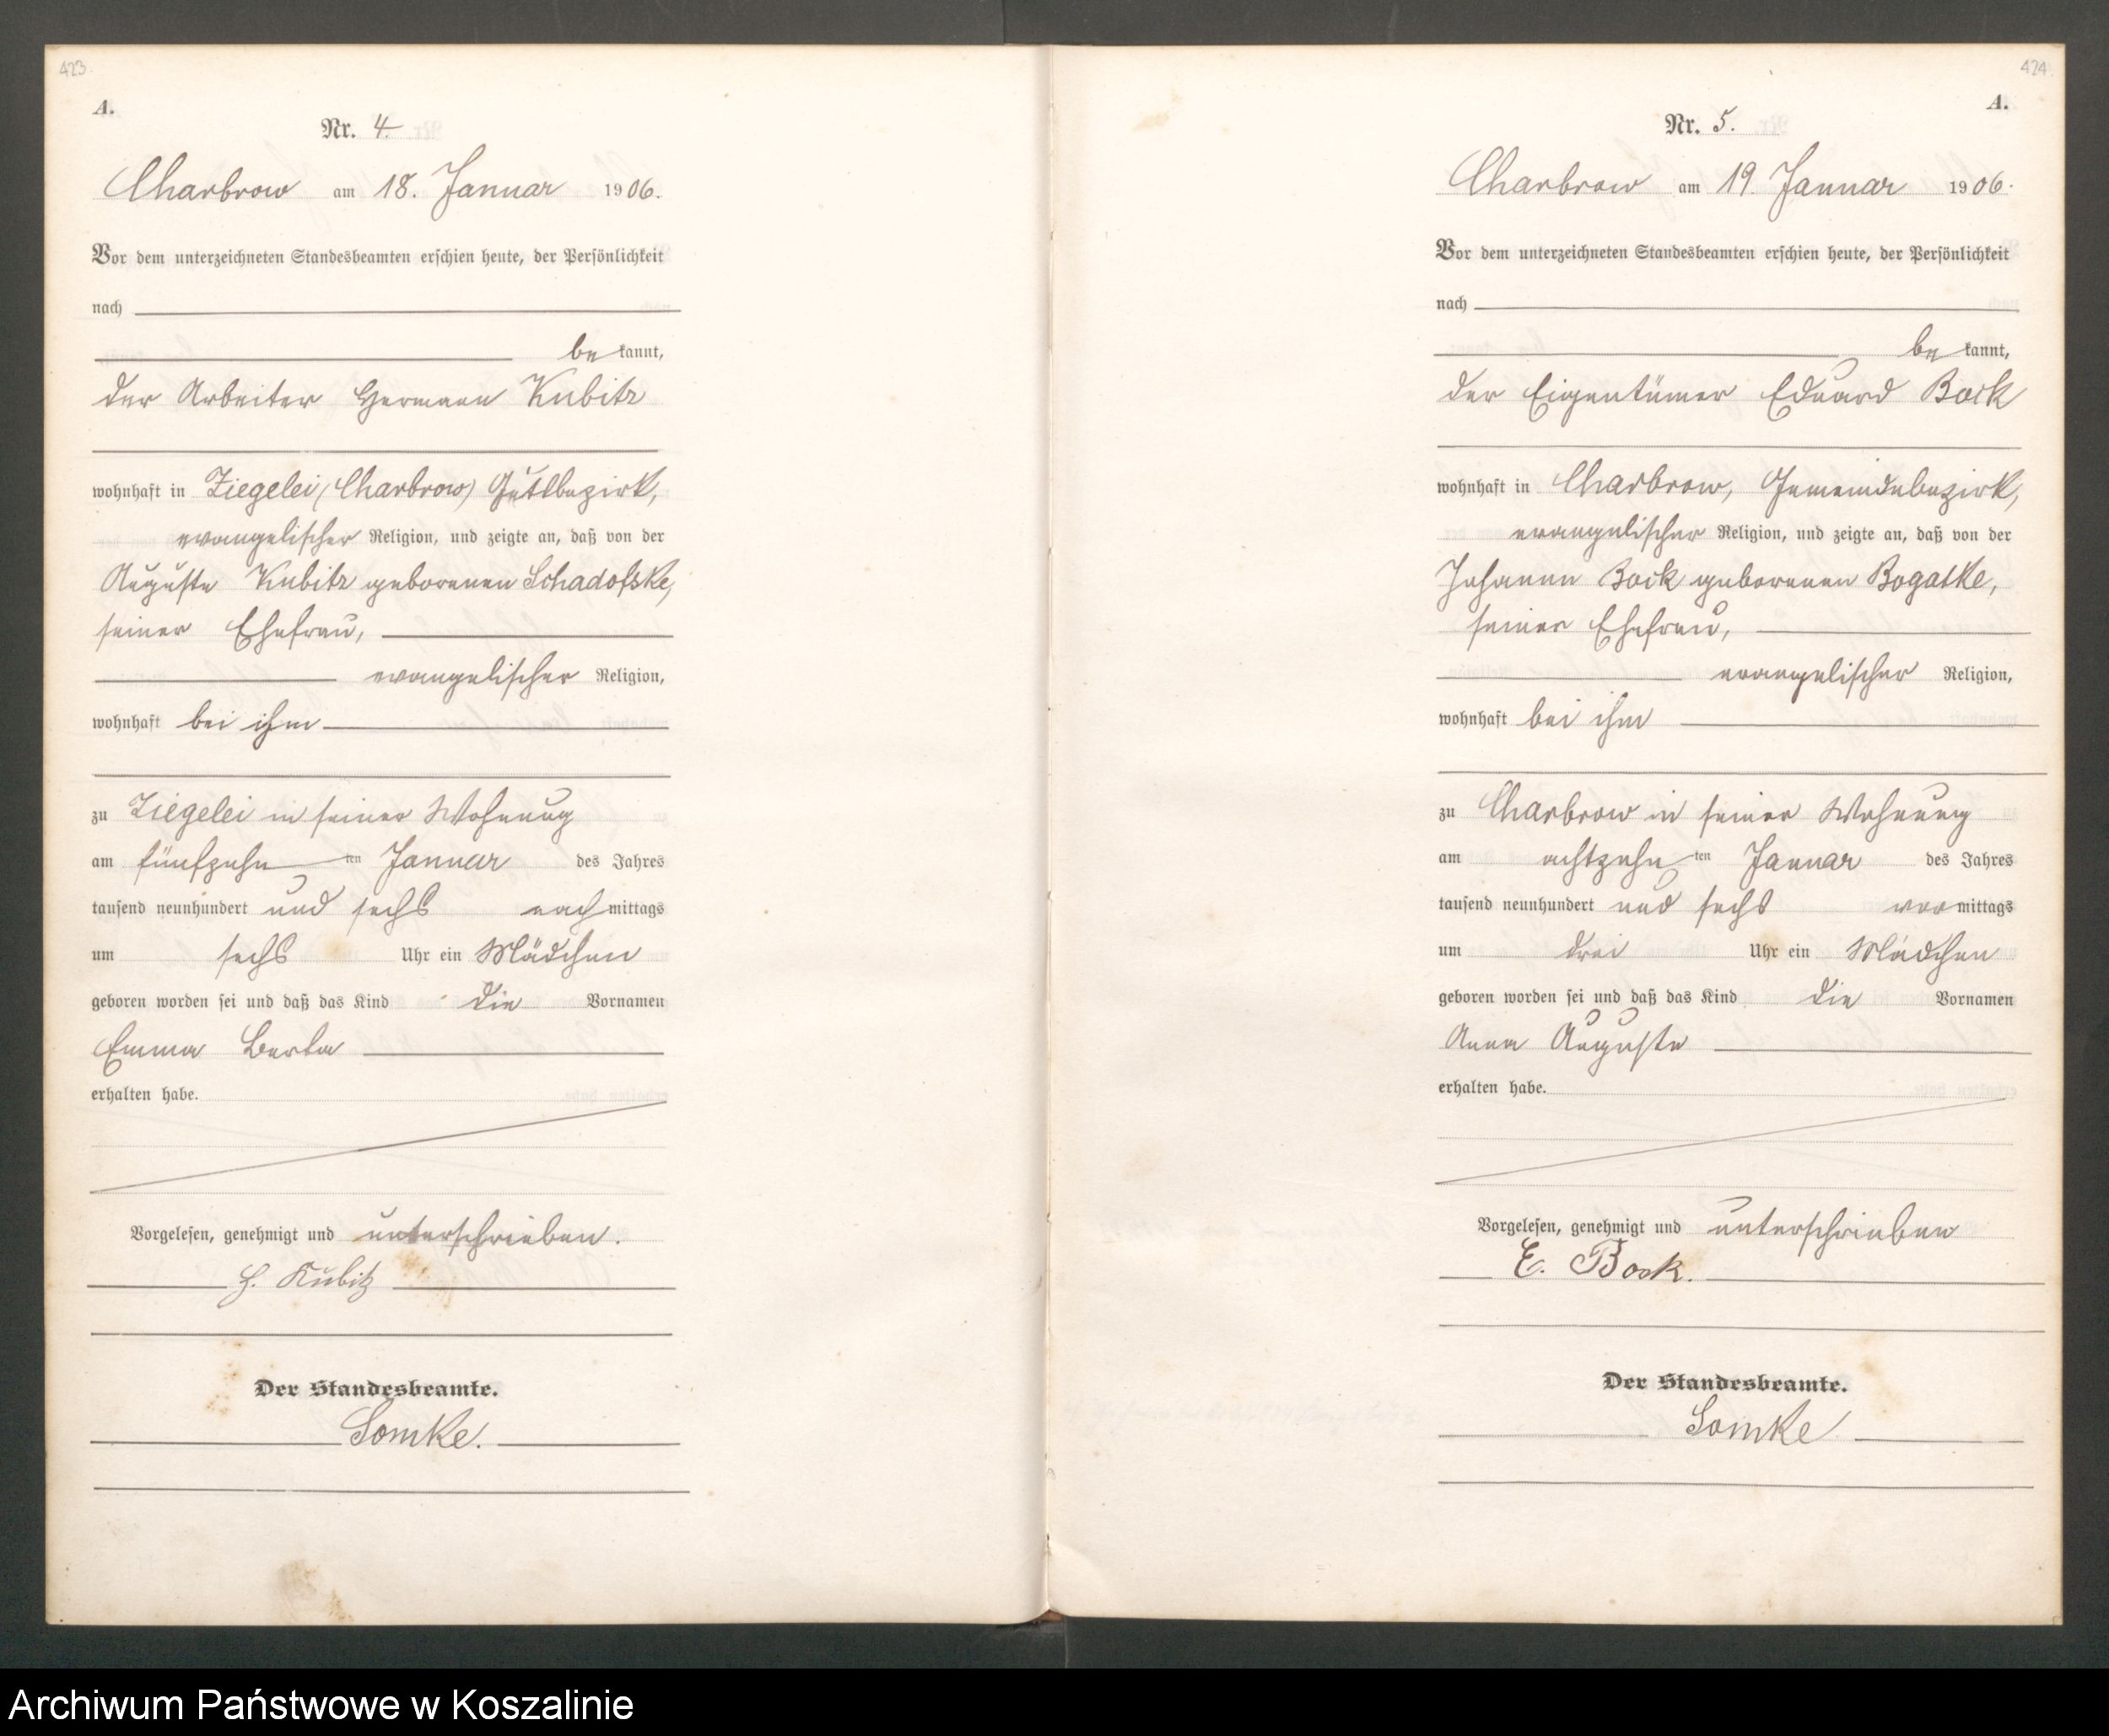 423.
A.
Nr. 4.
Charbrow am 18. Januar 1906.
Vor dem unterzeichneten Standesbeamten erschien heute, der Persönlichkeit
nach
be kannt,
der Arbeiter Hermann Kubitz
wohnhaft in Ziegelei (Charbrow) Gutsbezirk,
evangelischer Religion, und zeigte an, daß von der
Auguste Kubitz geborenen Schadofske,
seiner Ehefrau,
evangelischer Religion,
wohnhaft bei ihm
zu Ziegelei in seiner Wohnung
am fünfzehn ten Januar des Jahres
tausend neunhundert und sechs nachmittags
um sechs Uhr ein Mädchen
geboren worden sei und daß das Kind die Vornamen
Emma Berta
erhalten habe.
Vorgelesen, genehmigt und unterschrieben.
H. Kubitz
Der Standesbeamte.
Somke.
424
A.
Nr. 5.
Charbrow am 19. Januar 1906.
Vor dem unterzeichneten Standesbeamten erschien heute, der Persönlichkeit
nach
be kannt,
der Eigentümer Eduard Bock
wohnhaft in Charbrow, Gemeindebezirk,
evangelischer Religion, und zeigte an, daß von der
Johanna Bock geborenen Bogatke,
seiner Ehefrau,
evangelischer Religion,
wohnhaft bei ihm
zu Charbrow in seiner Wohnung
am achtzehn ten Januar des Jahres
tausend neunhundert und sechs vormittags
um drei Uhr ein Mädchen
geboren worden sei und daß das Kind die Vornamen
Anna Auguste
erhalten habe.
Vorgelesen, genehmigt und unterschrieben
E. Bock.
Der Standesbeamte.
Somke
Archiwum Państwowe w Koszalinie